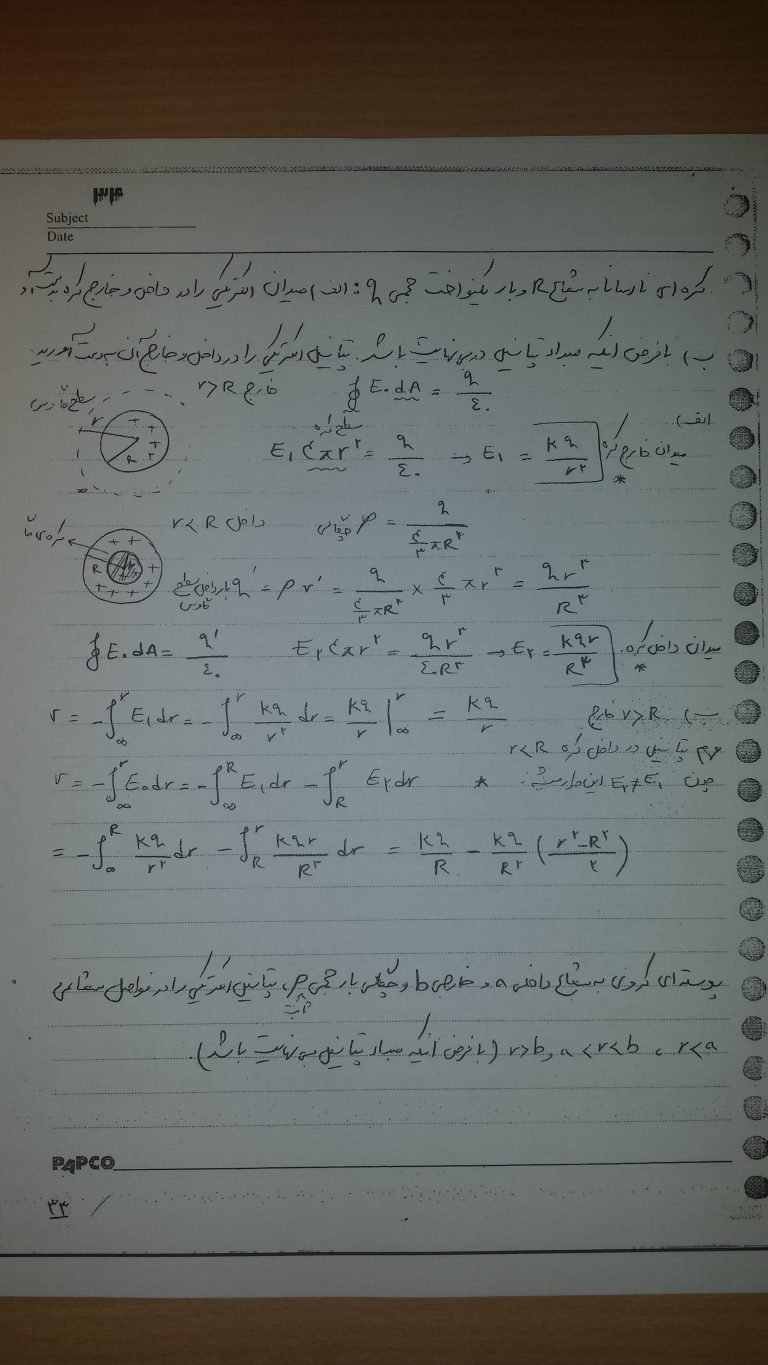 ۳۴
Subject
Date
کره ای نارسانا به شعاع R و بار یکنواخت حجمی q : الف) میدان الکتریکی را در داخل و خارج کره بدست آورید
ب) با فرض اینکه مبداء پتانسیل در بی نهایت باشد. پتانسیل الکتریکی را در داخل و خارج آن به دست آورید.
خارج r>R ∮ E.dA = q/ε.
سطح گاوس
r
R
+ + + +
الف)
سطح کره
میدان خارج کره E۱ ۴πr۲ = q/ε. → E۱ = kq/r۲ *
داخل r<R چگالی ρ = q/(۴/۳ πR۳)
R
+ + + + + + +
بار داخل سطح گاوس q' = ρ v' = q/(۴/۳ πR۳) × ۴/۳ πr۳ = qr۳/R۳
∮ E.dA = q'/ε. E۲ ۴πr۲ = qr۳/ε.R۳ → E۲ = kqr/R۳ میدان داخل کره. *
ب) r>R خارج v = -∫∞^r E۱dr = -∫∞^r kq/r۲ dr = kq/r |∞^r = kq/r
مهم پتانسیل در داخل کره r<R
v = -∫∞^r E.dr = -∫∞^R E۱dr - ∫R^r E۲dr * چون E۲≠E۱
= -∫∞^R kq/r۲ dr - ∫R^r kqr/R۳ dr = kq/R - kq/R۳ (r۲-R۲/۲)
پوسته ای کروی به شعاع داخلی a و خارجی b و چگالی بار حجمی ρ، پتانسیل الکتریکی را در فواصل شعاعی
ثابت
r<a ، a<r<b و r>b (با فرض اینکه مبداء پتانسیل بی نهایت باشد).
PAPCO
۳۳